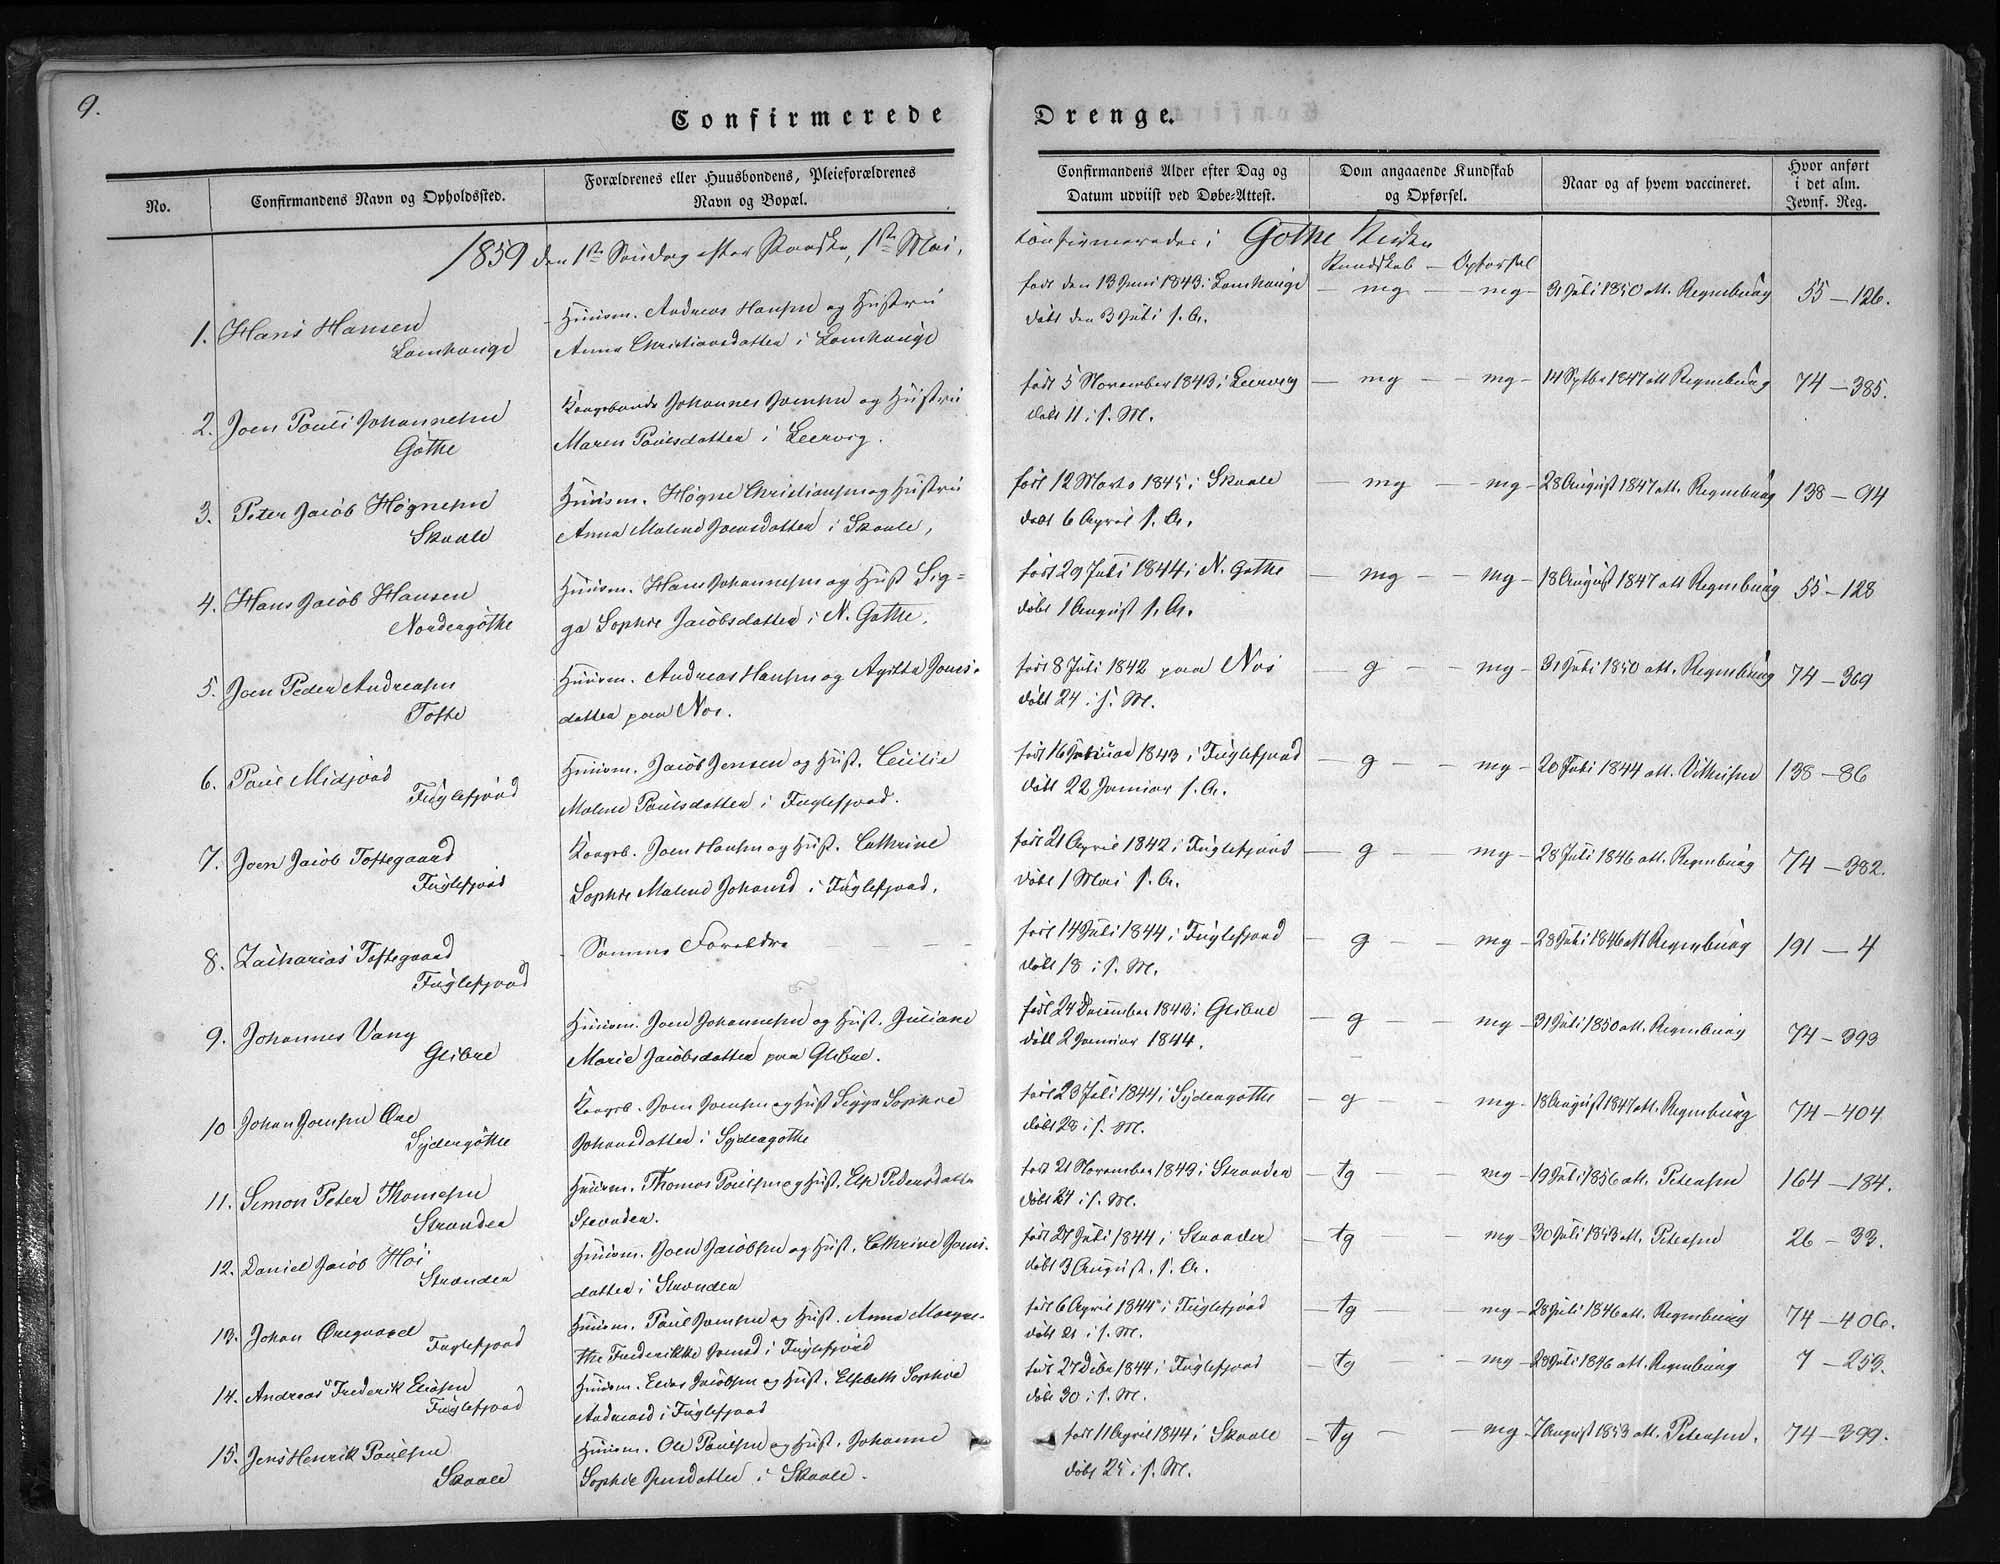 9.
Confirmerede Drenge.
No.
Confirmandens Navn og Opholdssted.
Forældrenes eller Huusbondens, Pleieforældrenes
Navn og Bopæl.
Confirmandens Alder efter Dag og
Datum udviist ved Døbe-Attest.
Dom angaaende Kundskab
og Opførsel.
Naar og af hvem vaccineret.
Hvor anført
i det alm.
Jevnf. Reg.
1859 den 1ste Søndag efter Paaske, 1ste Mai, confirmeredes i Gøthe Kirke
Kundskab — Opførsel
1. Hans Hansen
Lamhauge
Huusm. Andreas Hansen og Hustru
Anna Christiansdatter i Lamhauge
født den 13 Juni 1843 i Lamhauge
døbt den 3 Juli s. A.
— mg — mg —
31 Juli 1850 att. Regenburg
55 — 126.
2. Joen Pauli Johannesen
Gøthe
Kongsbonde Johannes Joensen og Hustru
Maren Poulsdatter i Leervig.
født 5 November 1843 i Leervig
døbt 11 i s. M.
— mg — mg —
14 Septbr 1847 att Regenburg
74 — 385.
3. Peter Jacob Høgnesen
Skaale
Huusm. Høgne Christiansen og Hustru
Anna Malene Joensdatter i Skaale,
født 12 Marts 1845 i Skaale
døbt 6 April s. A.
— mg — mg —
28 August 1847 att. Regenburg
138 — 94
4. Hans Jacob Hansen
Nordergøthe
Huusm. Hans Johannesen og Hust Sig=
ga Sophie Jacobsdatter i N. Gøthe.
født 29 Juli 1844 i N. Gøthe
døbt 1 August s. A.
— mg — mg —
18 August 1847 att Regenburg
55 — 128
5. Joen Peder Andreasen
Tofte
Huusm. Andreas Hansen og Agitta Joens-
datter paa Næs.
født 8 Juli 1842 paa Næs
døbt 24 i s. M.
— g — mg —
31 Juli 1850 att. Regenburg
74 — 369
6. Poul Midjord
Fuglefjord
Huusm. Jacob Jensen og Hust. Cecilie
Malene Poulsdatter i Fuglefjord.
født 16 Januar 1843 i Fuglefjord
døbt 22 Januar s. A.
— g — mg —
20 Juli 1844 att.
138 — 86
7. Joen Jacob Toftegaard
Fuglefjord
Kongsb. Joen Hansen og Hust. Cathrine
Sophie Malene Johansd i Fuglefjord.
født 21 April 1842 i Fuglefjord
døbt 1 Mai s. A.
— g — mg —
28 Juli 1846 att. Regenburg
74 — 382.
8. Zacharias Toftegaard
Fuglefjord
Samme Forældre
født 14 Juli 1844 i Fuglefjord
døbt 18 i s. M.
— g — mg —
28 Juli 1846 att Regenburg
191 — 4
9. Johannes Vang
Glibre
Huusm. Joen Johannesen og Hust. Juliane
Marie Jacobsdatter paa Glibre.
født 24 December 1843 i Glibre
døbt 2 Januar 1844.
— g — mg —
31 Juli 1850 att. Regenburg
74 — 393
10 Johan Joensen Øre
Sydergøthe
Kongsb. Joen Joensen og Hust Sigga Sophie
Johansdatter i Sydergøthe
født 23 Juli 1844 i Sydergøthe
døbt 28 i s. M.
— g — mg —
18 August 1847 att. Regenburg
74 — 404
11. Simon Peter Thomesen
Strænder
Huusm. Thomas Poulsen og Hust. Else Pedersdatter
Strænder.
født 21 November 1843 i Strænder
døbt 24 i s. M.
— tg — mg —
19 Juli 1856 att. Petersen
164 — 184.
12. Daniel Jacob Høi
Strænder
Huusm. Joen Jacobsen og Hust. Cathrine Joens-
datter i Strænder
født 27 Juli 1844 i Strænder
døbt 3 August. s. A.
— tg — mg —
30 Juli 1853 att. Petersen
26 — 33.
13. Johan Øregaard
Fuglefjord
Huusm. Poul Joensen og Hust. Anna Margre-
the Frederikke Joensd i Fuglefjord
født 6 April 1844 i Fuglefjord
døbt 21 i s. M.
— tg — mg —
28 Juli 1846 att. Regenburg
74 — 406.
14. Andreas Frederik Eliasen
Fuglefjord
Huusm. Elias Jacobsen og Hust. Elsebeth Sophie
Andreasd i Fuglefjord
født 27 Debr 1844 i Fuglefjord
døbt 30 i s. M.
— tg — mg —
28 Juli 1846 att. Regenburg
7 — 253.
15. Jens Henrik Poulsen
Skaale
Huusm. Ole Poulsen og Hust. Johanne
Sophie Jensdatter i Skaale.
født 11 April 1844 i Skaale
døbt 25 i s. M.
— tg — mg —
7 August 1853 att. Petersen.
74 — 399.